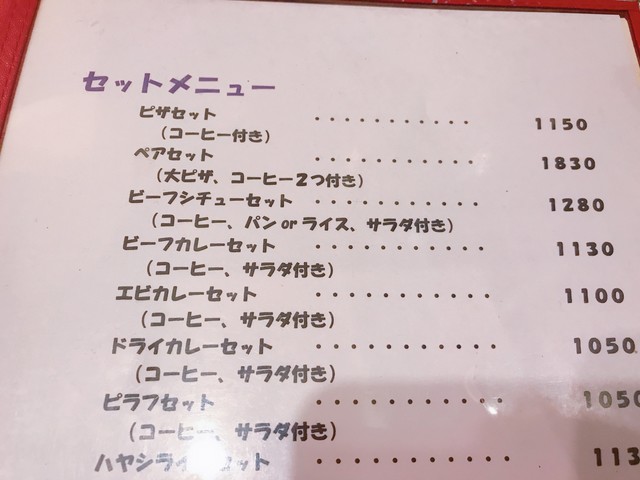 セットメニュー
ピザセット ・・・・・・・・・・・ 1150
(コーヒー付き)
ペアセット ・・・・・・・・・・・ 1830
(大ピザ、コーヒー2つ付き)
ビーフシチューセット ・・・・・・・・・・・ 1280
(コーヒー、パンorライス、サラダ付き)
ビーフカレーセット ・・・・・・・・・・・ 1130
(コーヒー、サラダ付き)
エビカレーセット ・・・・・・・・・・・ 1100
(コーヒー、サラダ付き)
ドライカレーセット ・・・・・・・・・・・ 1050
(コーヒー、サラダ付き)
ピラフセット ・・・・・・・・・・・ 1050
(コーヒー、サラダ付き)
ハヤシライスセット ・・・・・・・・・・・ 113